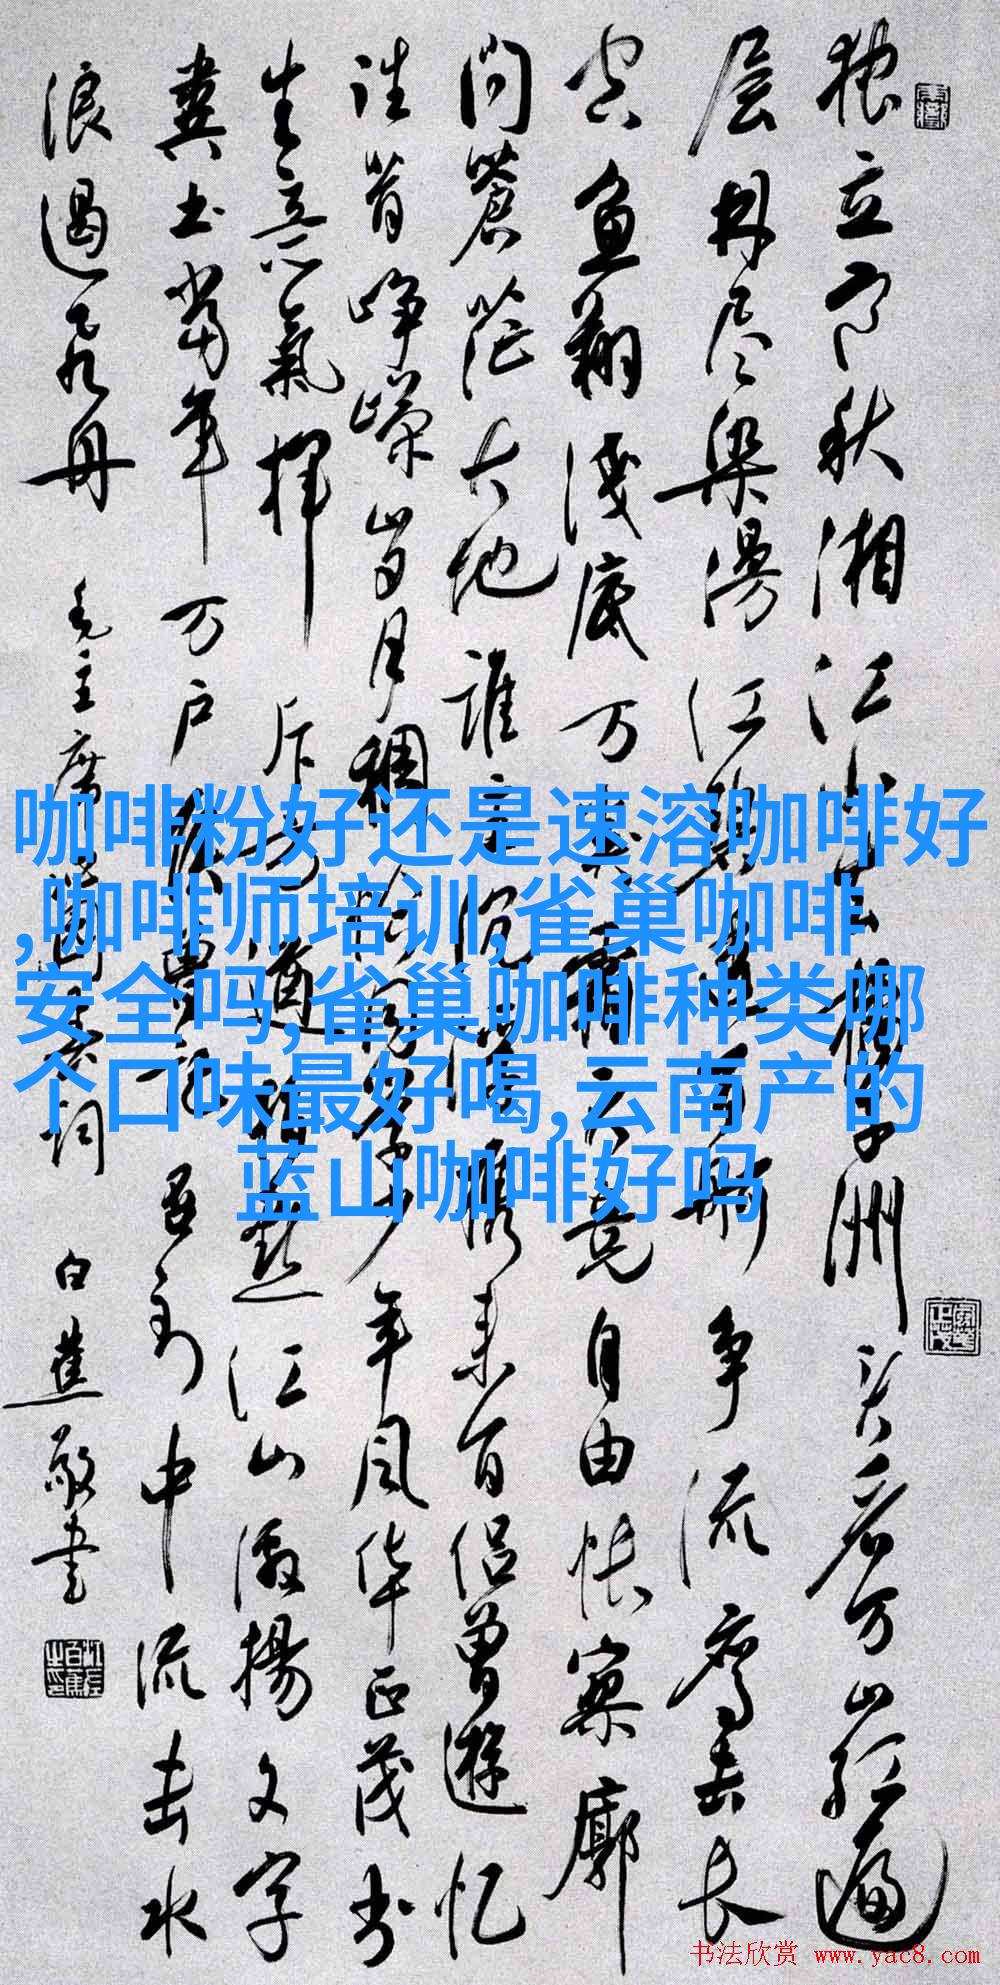 独立寒秋湘江北去橘子洲头看万山红遍
层林尽染漫江碧透百舸争流鹰击长
空鱼翔浅底万类霜天竞自由怅寥廓
问蒼茫大地谁主沉浮携来百侣曾遊忆
往昔峥嵘岁月稠恰同学少年风华正茂书
生意氣挥斥方遒指点江山激揚文字
粪土当年万户侯曾记否到中流击水
浪遏飞舟 毛主席 词 白蕉敬書
咖啡粉好还是速溶咖啡好
,咖啡师培训,雀巢咖啡
安全吗,雀巢咖啡种类哪
个口味最好喝,云南产的
蓝山咖啡好吗
书法欣赏 www.yac8.com